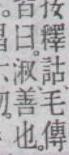 按釋詁毛傳
皆曰。淑善也。